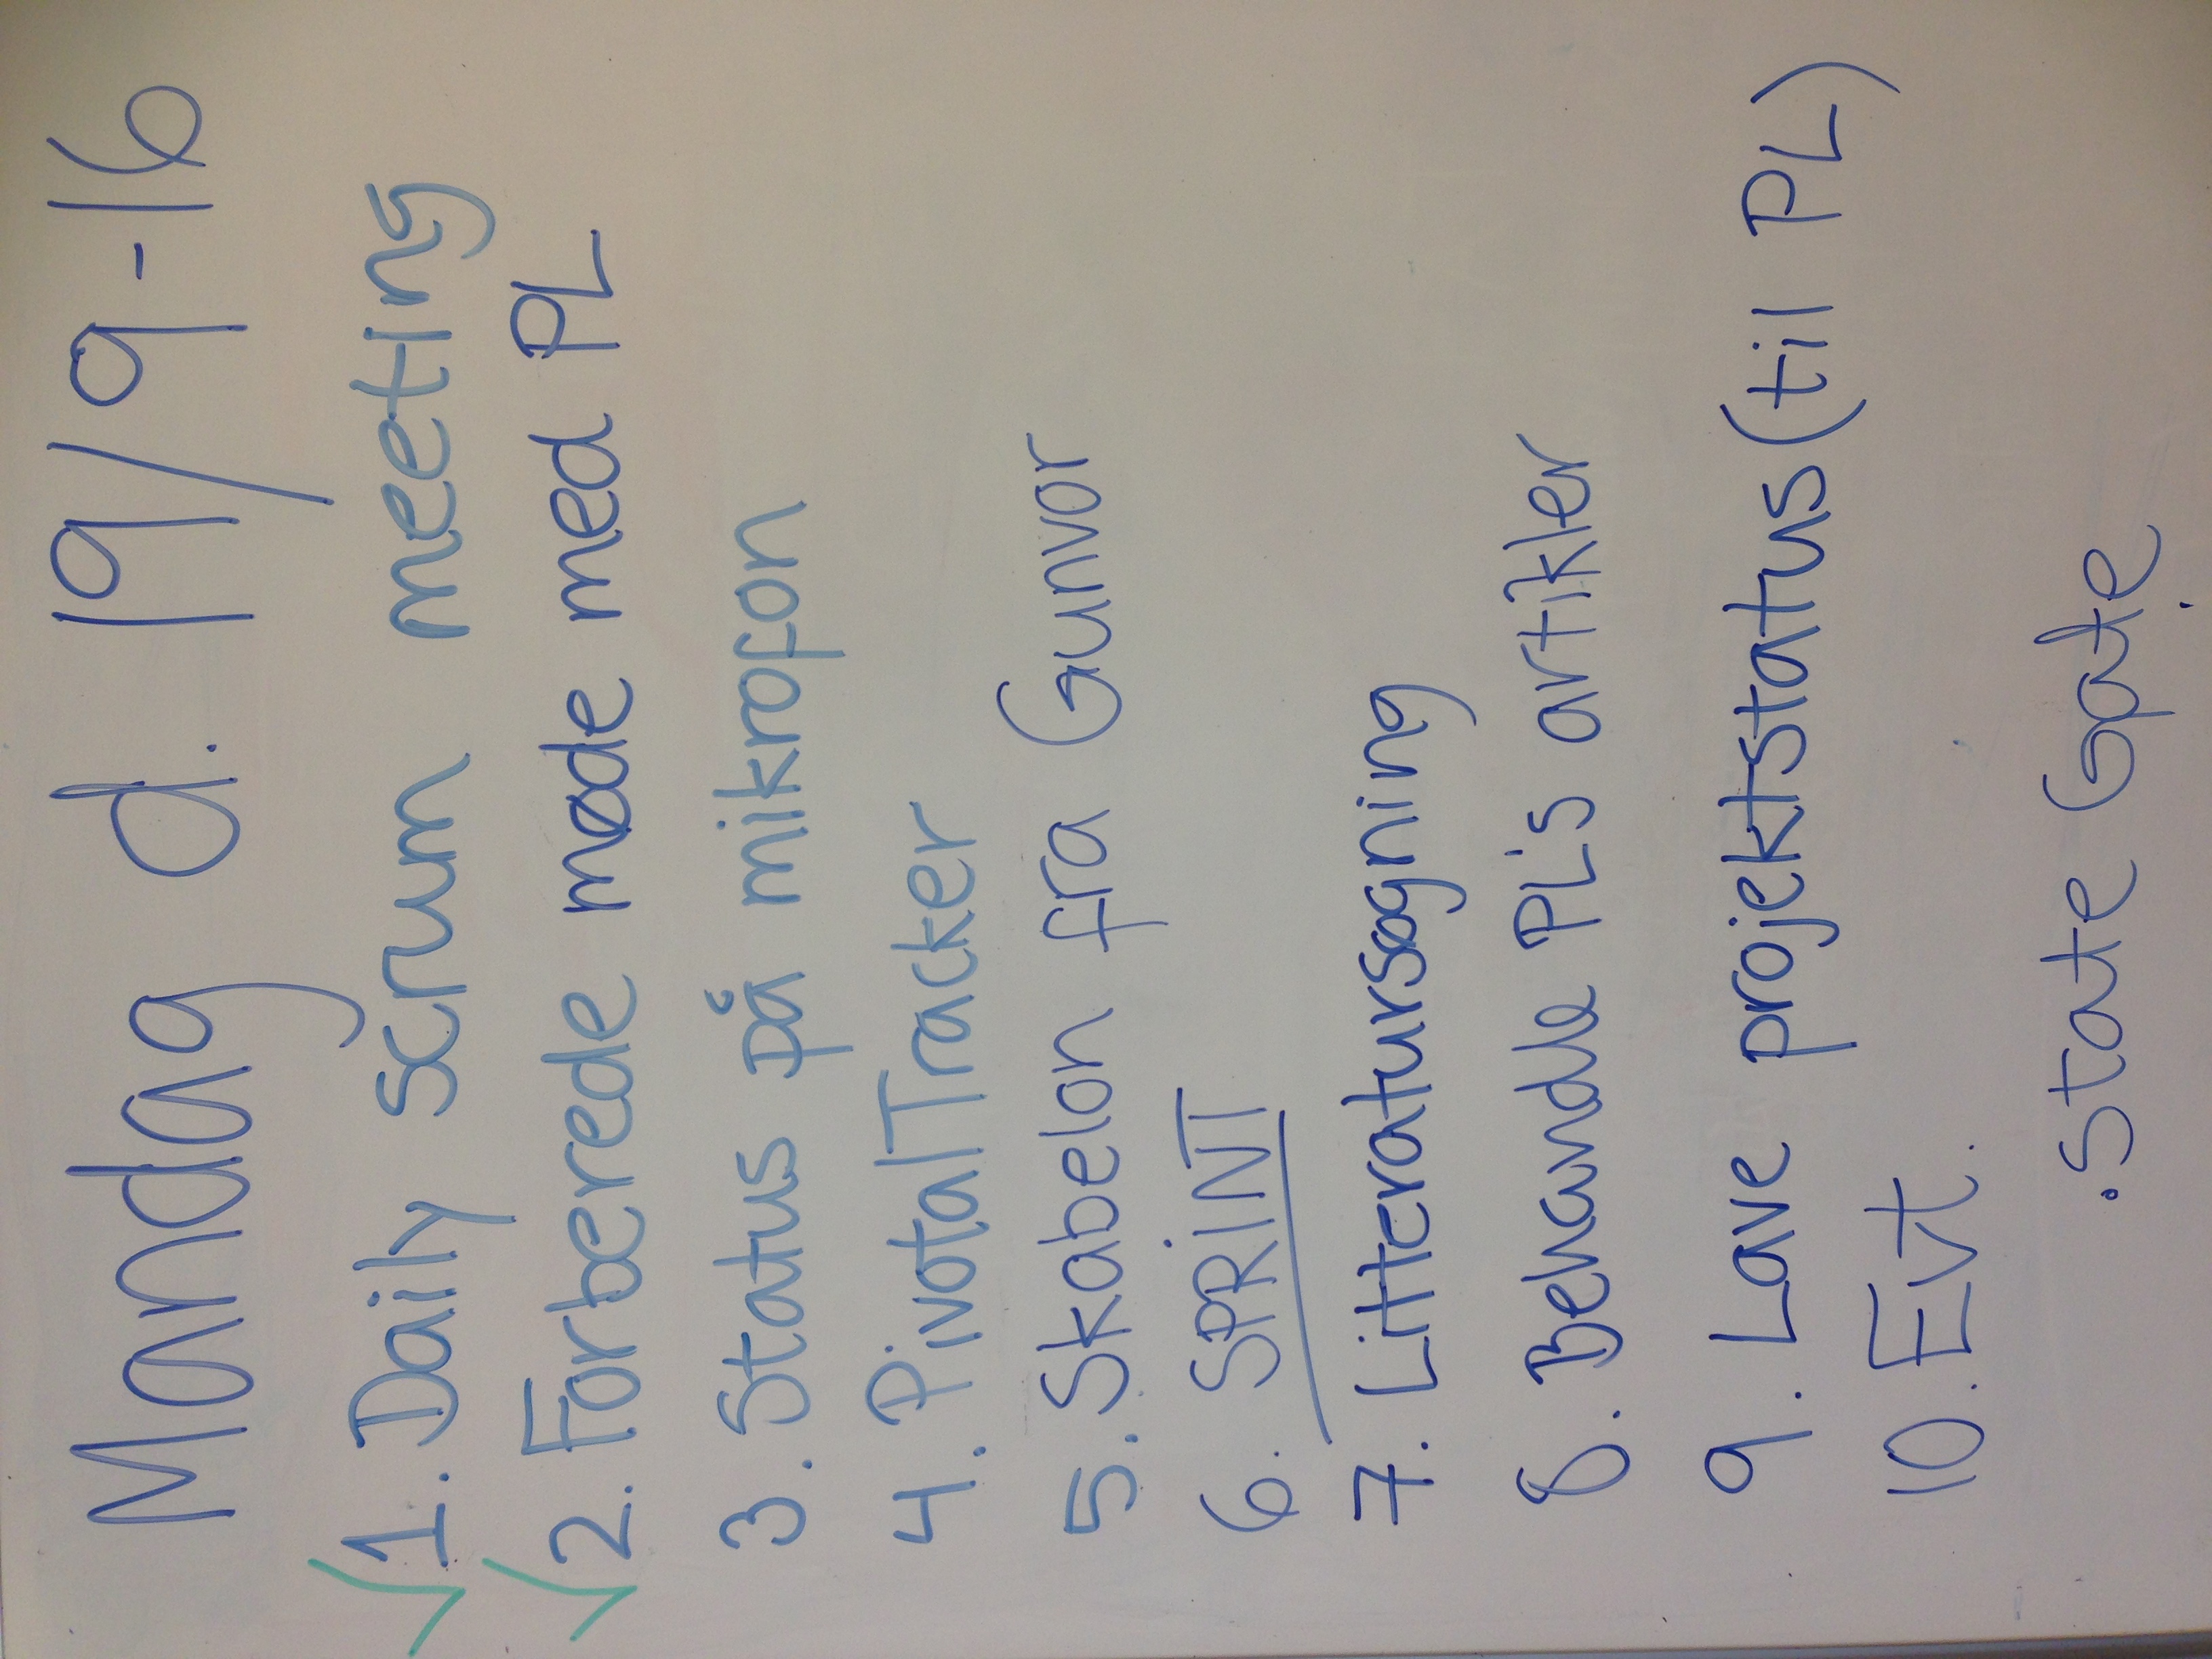 Mandag d. 19/9-16
✓1. Daily scrum meeting
✓2. Forberede møde med PL
3. Status på mikrofon
4. PivotalTracker
5. Skabelon fra Gunvor
6. SPRiNT
7. Litteratursøgning
8. Behandle PL's artikler
9. Lave projektstatus (til PL)
10. Evt.
. State Gate